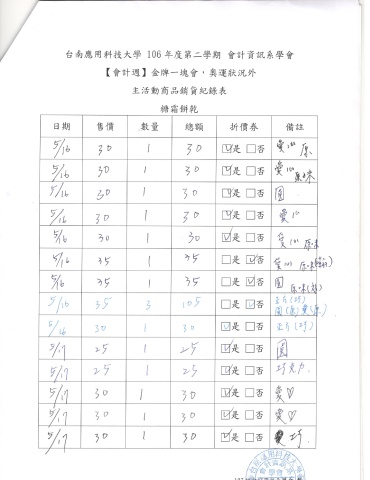 台南應用科技大學 106 年度第二學期 會計資訊系學會
【會計週】金牌一塊會，奧運狀況外
主活動商品銷貨紀錄表
糖霜餅乾
日期 售價 數量 總額 折價券 備註
5/16 30 1 30 ☑是 □否 愛 原
5/16 30 1 30 ☑是 □否 愛 原味
5/16 30 1 30 ☑是 □否 圓
5/16 30 1 30 ☑是 □否 愛
5/16 30 1 30 ☑是 □否 愛 原味
5/16 35 1 35 □是 ☑否 愛 原味
5/16 35 1 35 □是 ☑否 圓 原味
5/16 35 3 105 □是 ☑否
5/16 30 1 30 ☑是 □否
5/17 25 1 25 ☑是 □否 圓
5/17 25 1 25 ☑是 □否 巧克力
5/17 30 1 30 ☑是 □否 愛♡
5/17 30 1 30 ☑是 □否 愛♡
5/17 30 1 30 ☑是 □否 愛 巧